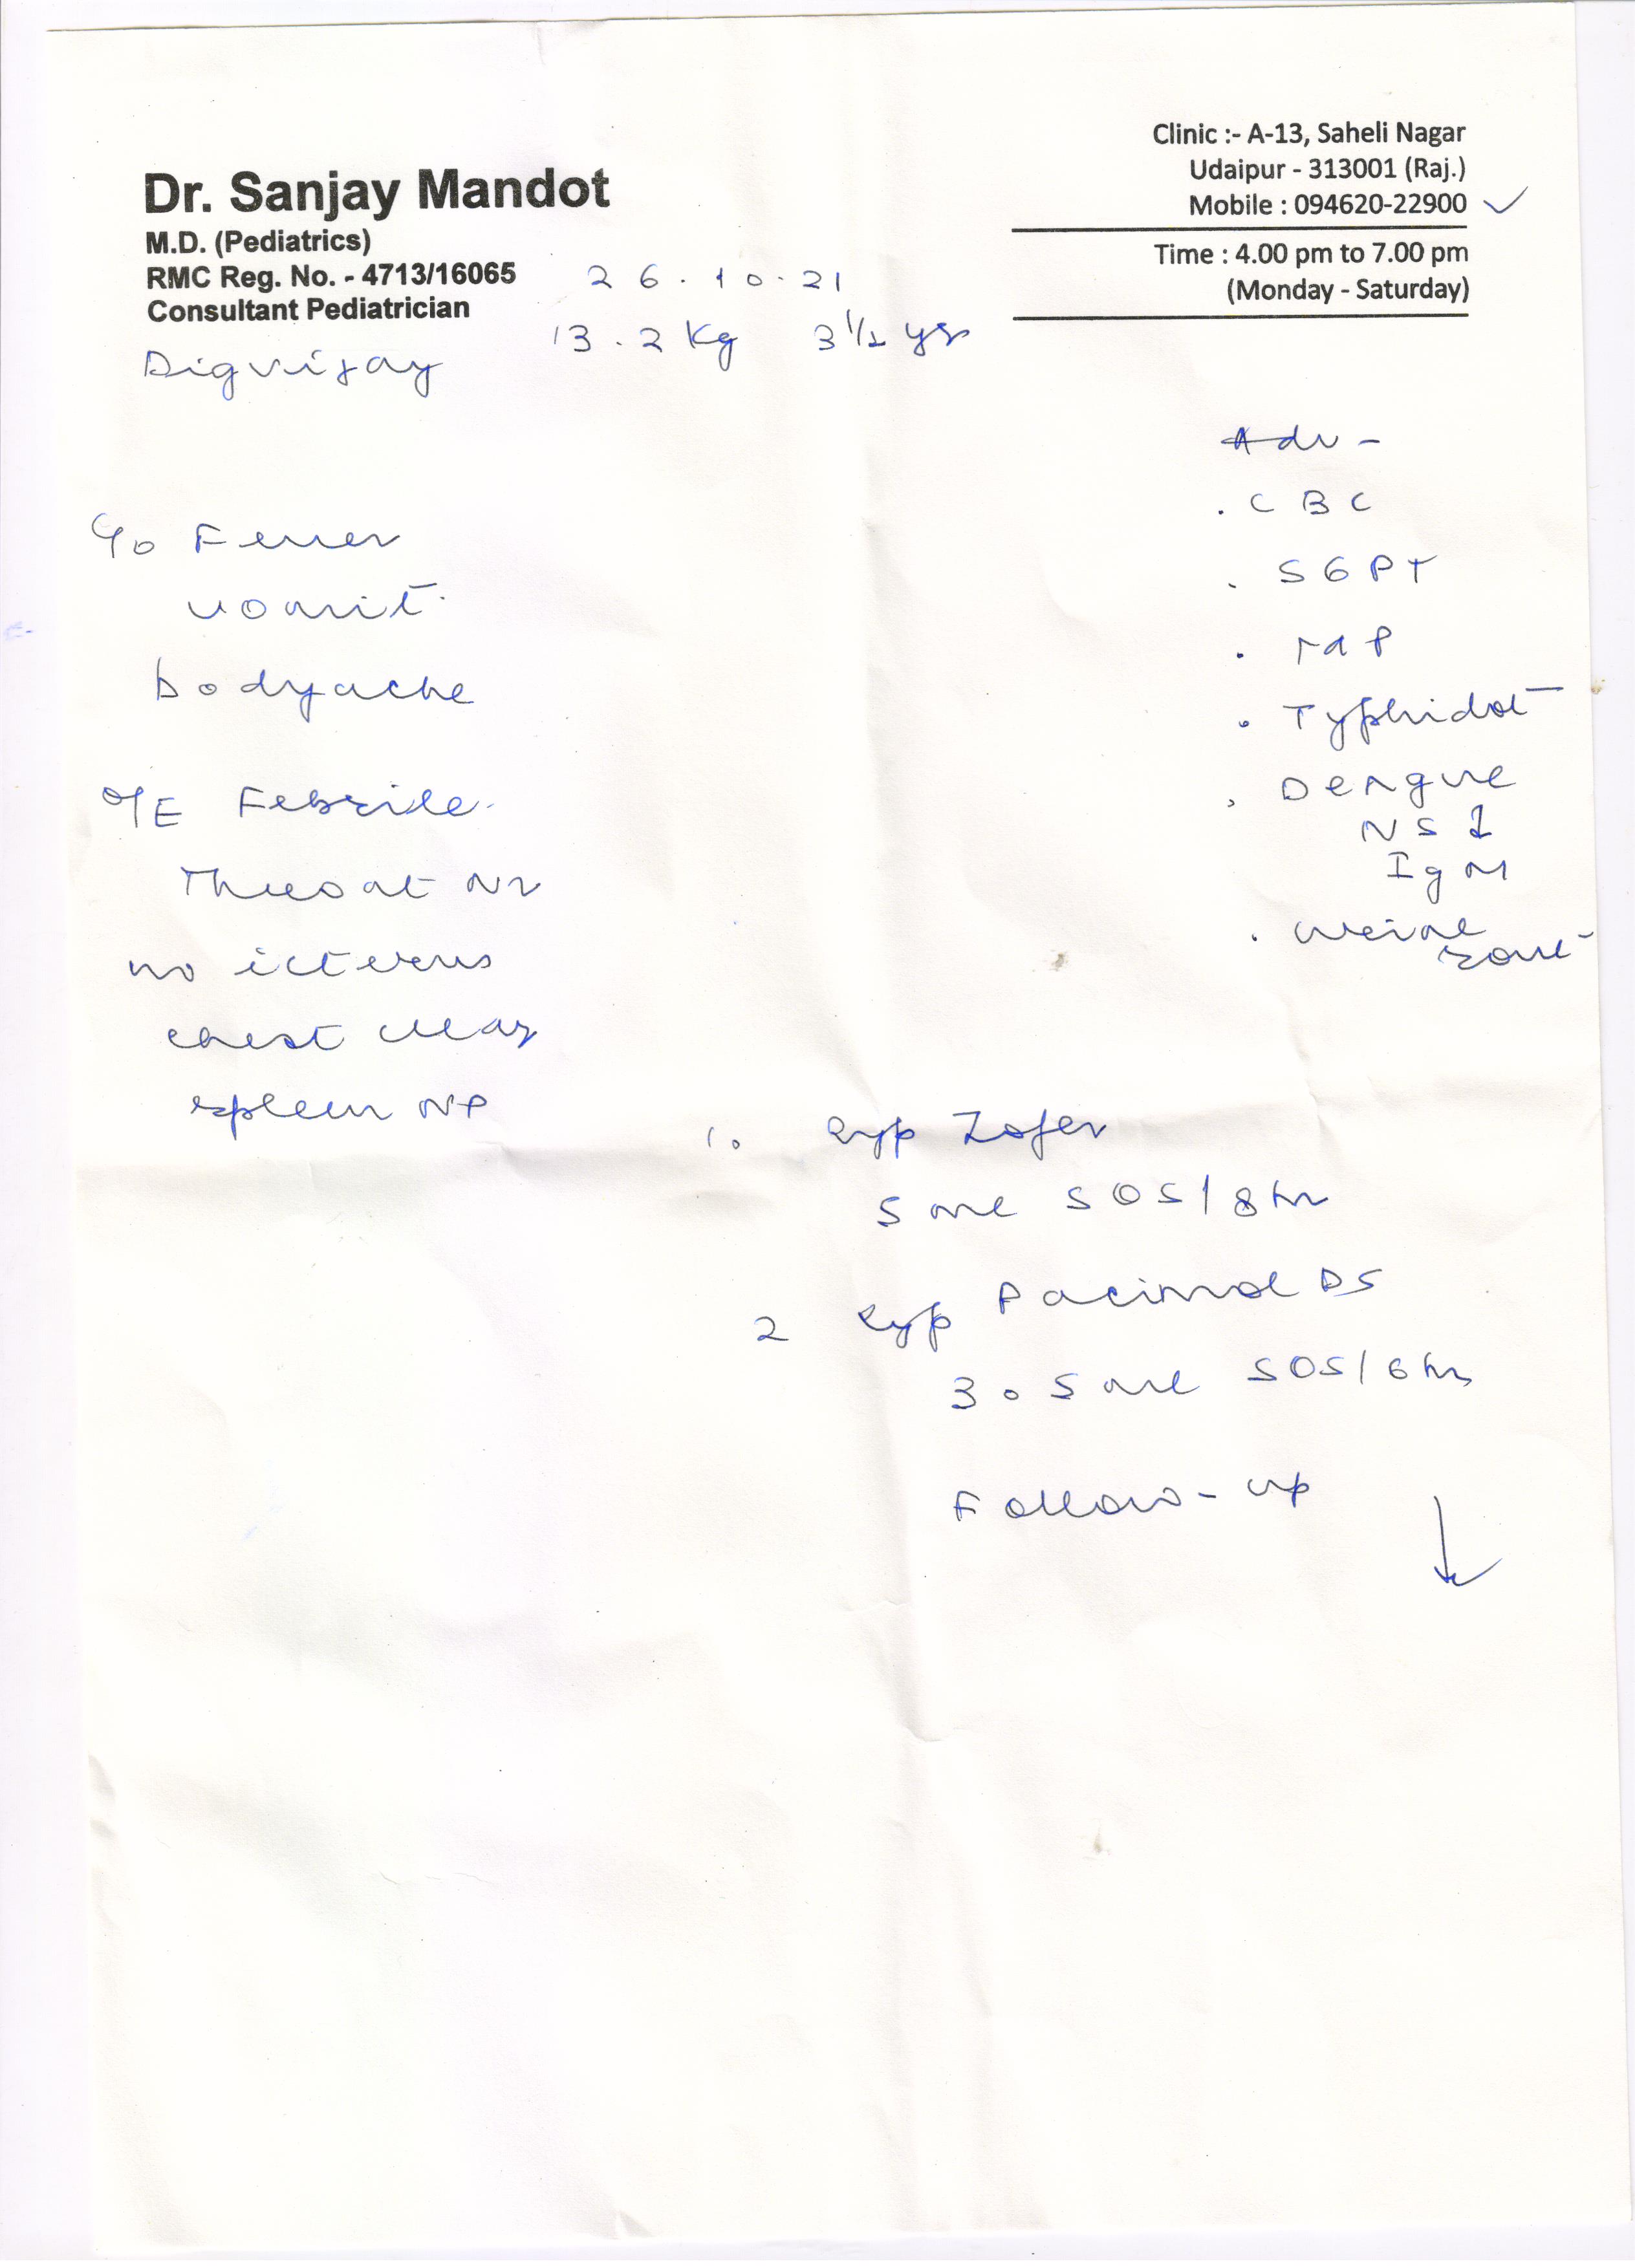 Dr. Sanjay Mandot
M.D. (Pediatrics)
RMC Reg. No. - 4713/16065
Consultant Pediatrician
Clinic :- A-13, Saheli Nagar
Udaipur - 313001 (Raj.)
Mobile : 094620-22900
Time : 4.00 pm to 7.00 pm
(Monday - Saturday)
26.10.21
13.2 kg 3 1/2 yr
Digvijay
Adv -
. CBC
. SGPT
. MP
. Typhidot
. Dengue
NS1
IgM
. Urine
rout
C/o Fever
vomit.
bodyache
O/E Febrile.
Throat Nr
no icterus
chest clear
spleen NP
1. Syp Zofer
5 ml SOS/8hr
2 Syp Pacimol DS
3.5 ml SOS/6hr
Follow-up